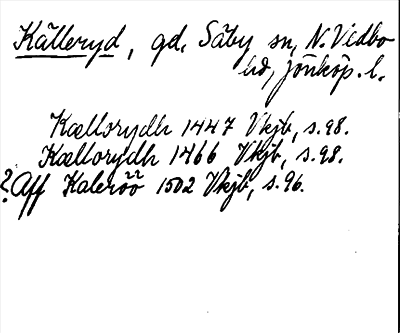 Källeryd, gd, Säby sn, N. Vidbo
hd, Jönköp. l.
Kællorydh 1447 Vkjb, s. 98.
Kællorydh 1466 Vkjb, s. 98.
? Aff Kaleröö 1502 Vkjb, s. 96.